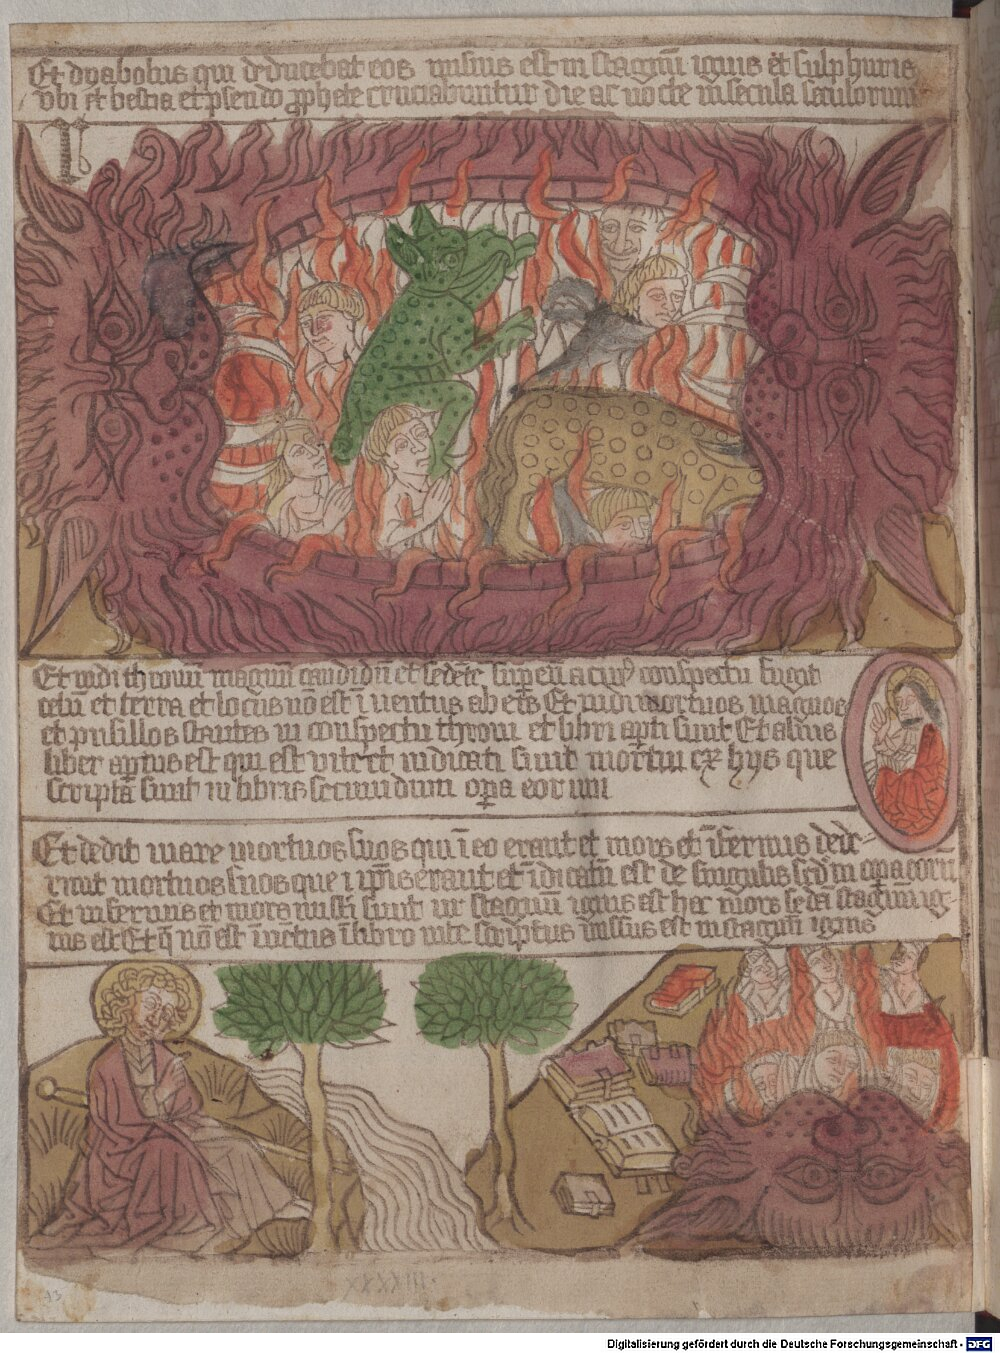 Et dyabolus qui deducebat eos missus est in stagnū ignis et sulphuris
vbi et bestia et pseudo ꝓphete cruciabuntur die ac nocte in secula seculorum
Et vidi thronū magnū candidū et sedētē sup eū a cuiꝰ conspectu fugit
celū et terra et locus nō est īuentus ab eis Et vidi mortuos magnos
et pusillos stantes in conspectu throni et libri apti sunt Et alius
liber aptus est qui est vite et iudicati sunt mortui ex hys que
scripta sunt in libris secundum opa eorum
Et dedit mare mortuos suos qui ī eo erant et mors et īfernus dede
runt mortuos suos que ī ipis erant et īdicatū est de singulis scdm opa eorū
Et infernus et mors missi sunt in stagnū ignis est hec mors scda stagnū ig
nis est Et q nō est īuētus ī libro vite scriptus missus est in stagnū ignis
xxxxiii
43
Digitalisierung gefördert durch die Deutsche Forschungsgemeinschaft - DFG